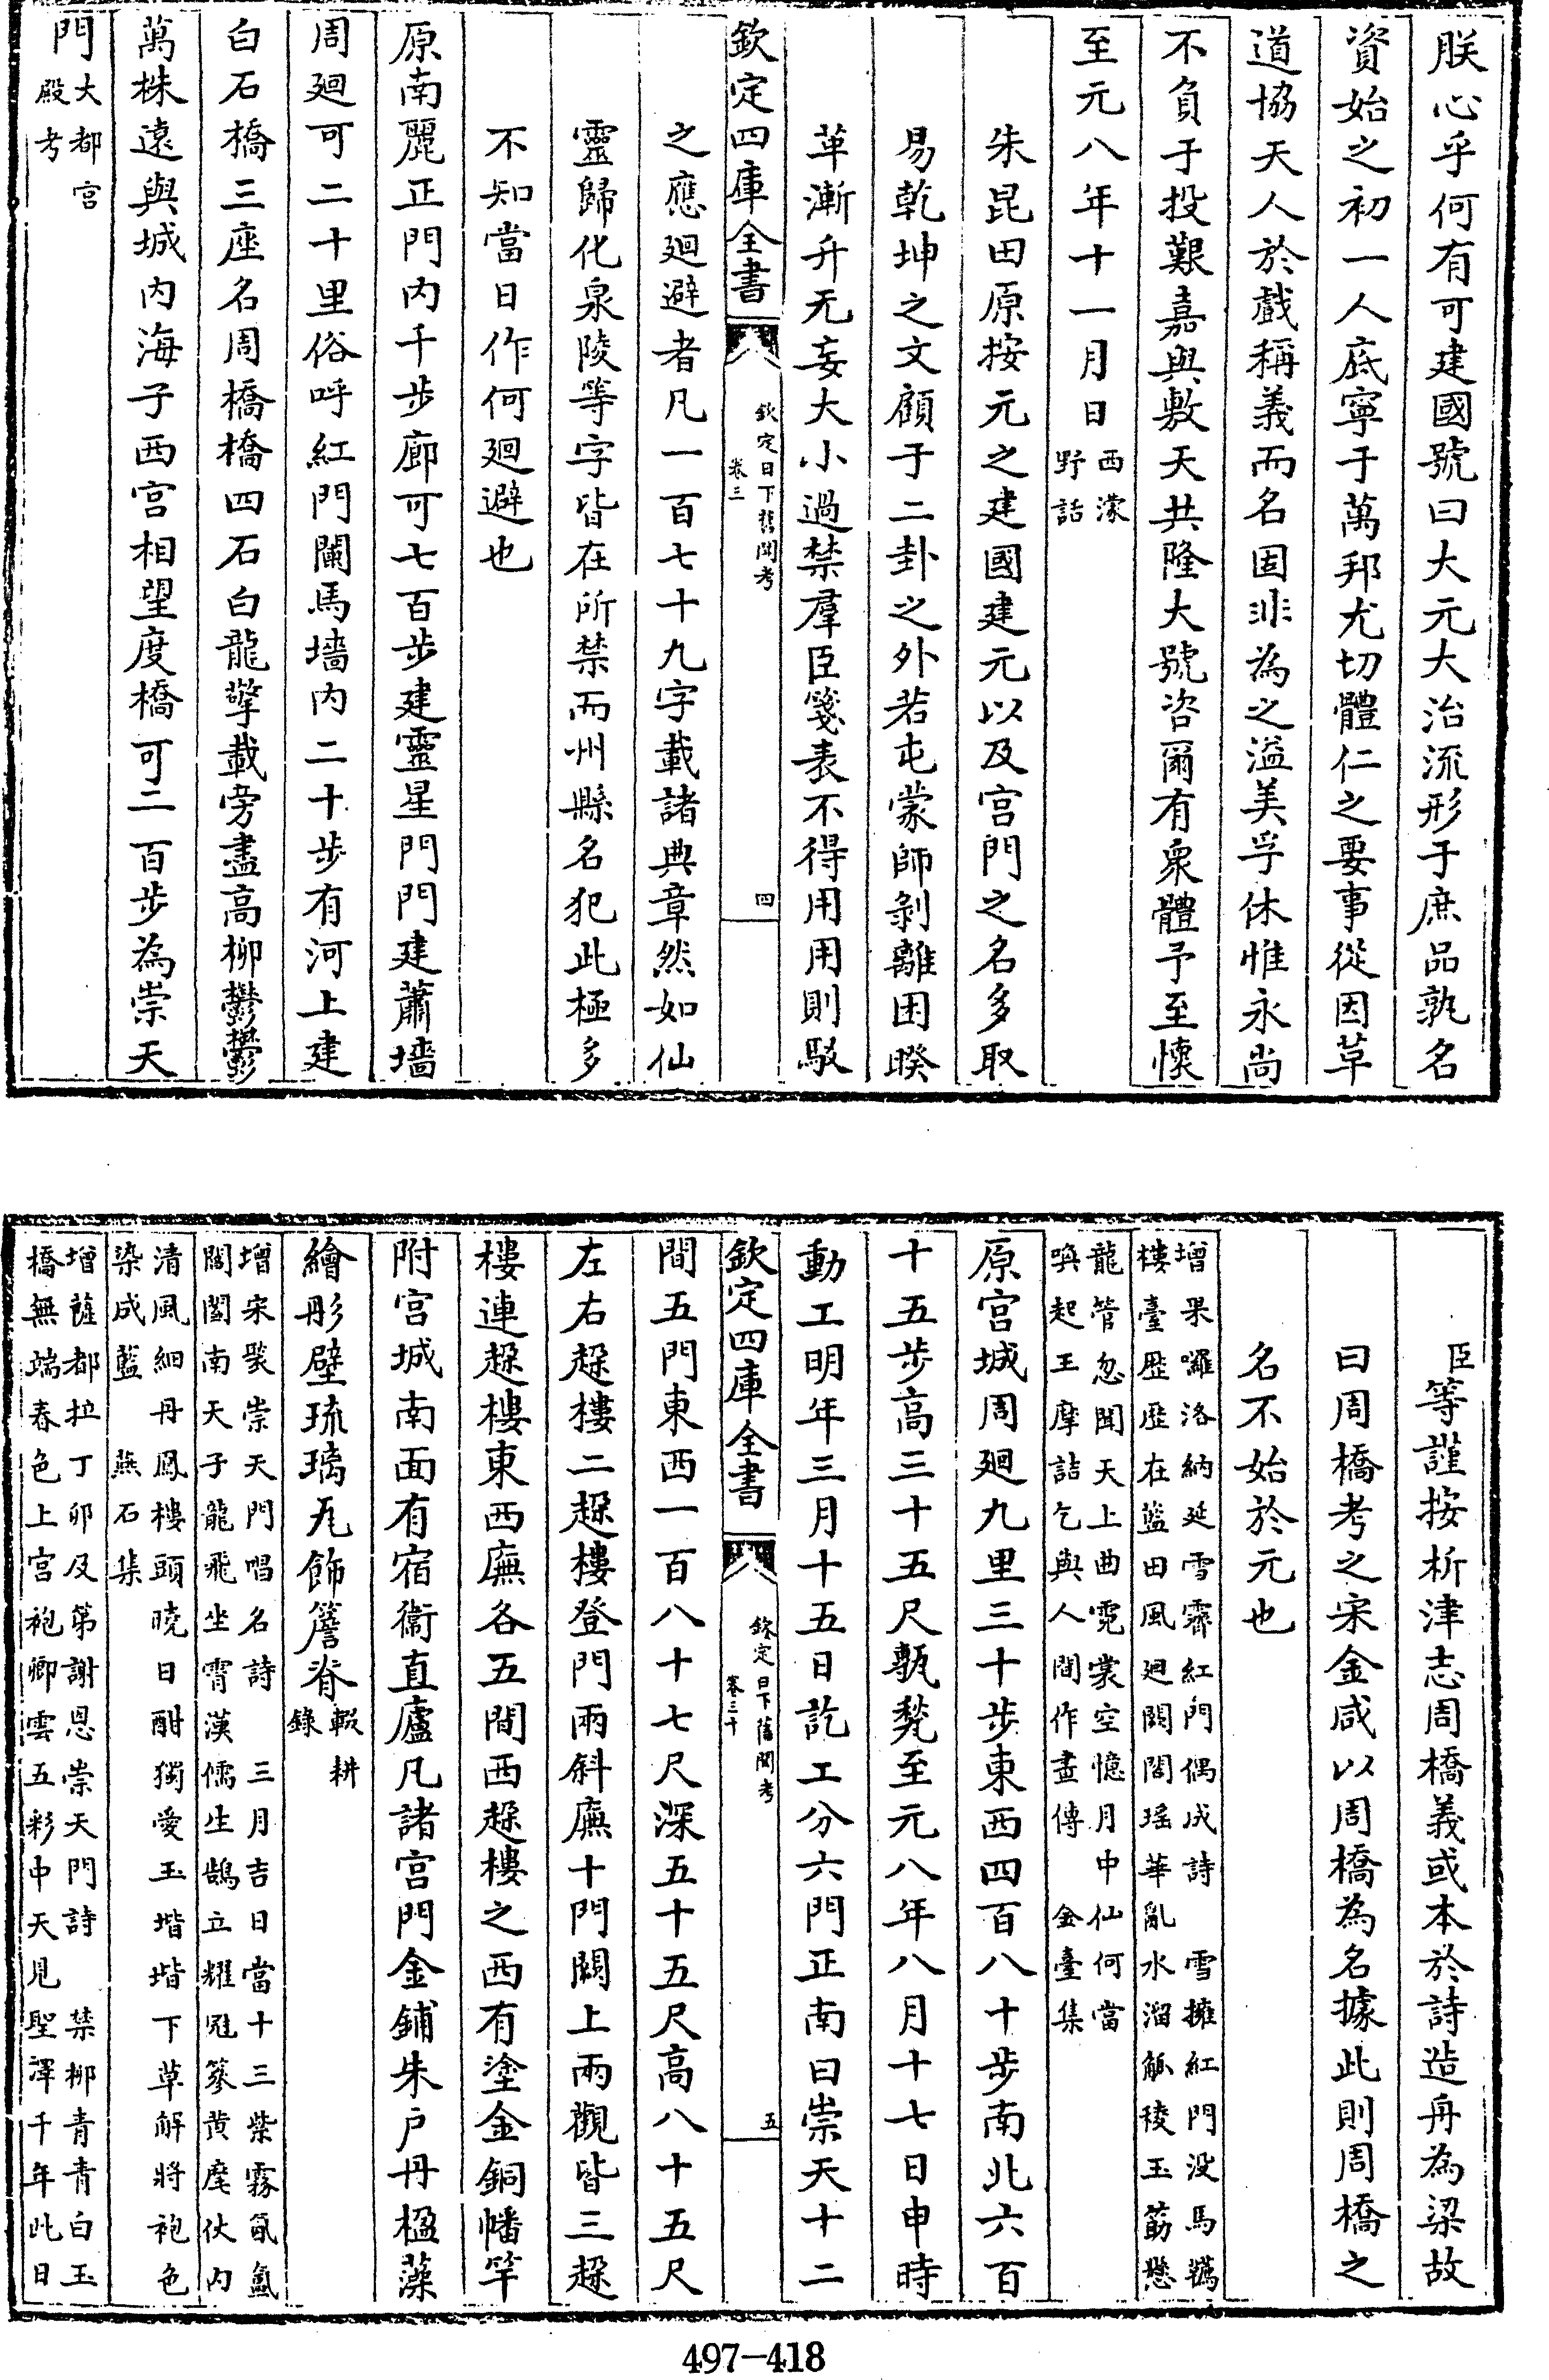 朕心乎何有可建國號曰大元大治流形于庶品孰名
資始之初一人底寧于萬邦尤切體仁之要事從因革
道協天人於戲稱義而名固非為之溢美孚休惟永尚
不負于投艱嘉與敷天共隆大號咨爾有衆體予至懷
至元八年十一月日西濛野話
朱昆田原按元之建國建元以及宫門之名多取
易乾坤之文顧于二卦之外若屯蒙師剝離困睽
革漸升无妄大小過禁羣臣箋表不得用用則駁
欽定四庫全書
欽定日下舊聞考
卷三
四
之應廻避者凡一百七十九字載諸典章然如仙
靈歸化泉陵等字皆在所禁而州縣名犯此極多
不知當日作何廻避也
原南麗正門内千步廊可七百步建靈星門門建蕭墻
周廻可二十里俗呼紅門闌馬墻内二十步有河上建
白石橋三座名周橋橋四石白龍擎載旁盡高柳鬱鬱
萬株遠與城内海子西宫相望度橋可二百步為崇天
門大都宫殿考
臣等謹按析津志周橋義或本於詩造舟為梁故
曰周橋考之宋金咸以周橋為名據此則周橋之
名不始於元也
增果囉洛納延雪霽紅門偶成詩　雪擁紅門没馬韉
樓臺歴歴在藍田風廻閶闔瑤華亂水溜觚稜玉筯懸
龍管忽聞天上曲霓裳空憶月中仙何當
喚起王摩詰乞與人間作畫傳　金臺集
原宫城周廻九里三十步東西四百八十步南北六百
十五步高三十五尺甎甃至元八年八月十七日申時
動工明年三月十五日訖工分六門正南曰崇天十二
欽定四庫全書
欽定日下舊聞考
卷三十
五
間五門東西一百八十七尺深五十五尺高八十五尺
左右趓樓二趓樓登門兩斜廡十門闕上兩觀皆三趓
樓連趓樓東西廡各五間西趓樓之西有塗金銅幡竿
附宫城南面有宿衞直廬凡諸宫門金鋪朱户丹楹藻
繪彤壁琉璃瓦飾簷脊輟耕錄
增宋褧崇天門唱名詩　三月吉日當十三紫霧氤氳
閶闔南天子龍飛坐霄漢儒生鵠立耀冠篸黄麾仗内
清風細丹鳳樓頭曉日酣獨愛玉堦堦下草解將袍色
染成藍　燕石集
增薩都拉丁卯及第謝恩崇天門詩　禁柳青青白玉
橋無端春色上宫袍卿雲五彩中天見聖澤千年此日
497-418